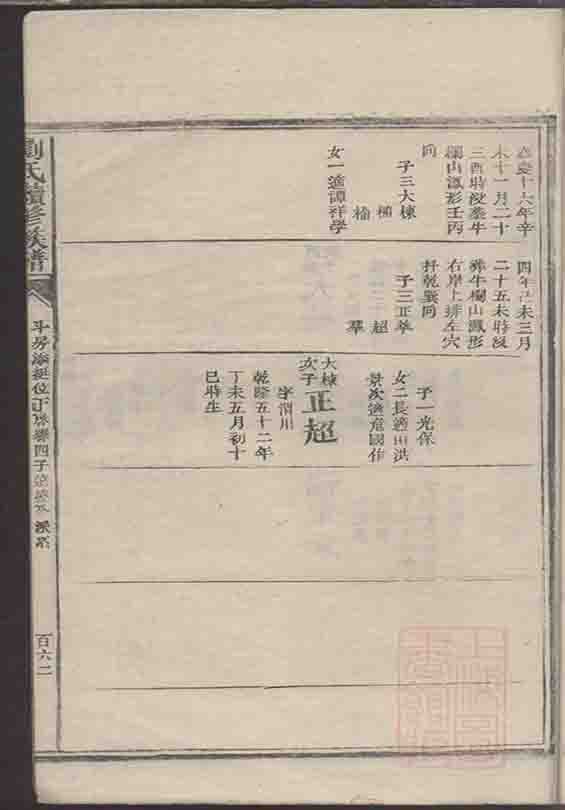 嘉慶十六年辛
未十一月二十
三酉時没塟牛
欄山鳳形壬丙
向
子三大棟
楠
榆
女一適譚祥學
四年己未三月
二十五未時没
葬牛欄山鳳形
右岸上排左穴
扦乾巽向
子三正拳
超
羣
子一光保
女二長適田洪
景次適龍國作
大棟
次子
正超
字渭川
乾隆五十二年
丁未五月初十
巳時生
劉氏續修族譜
斗房添挺位下
四子
派系
百六二